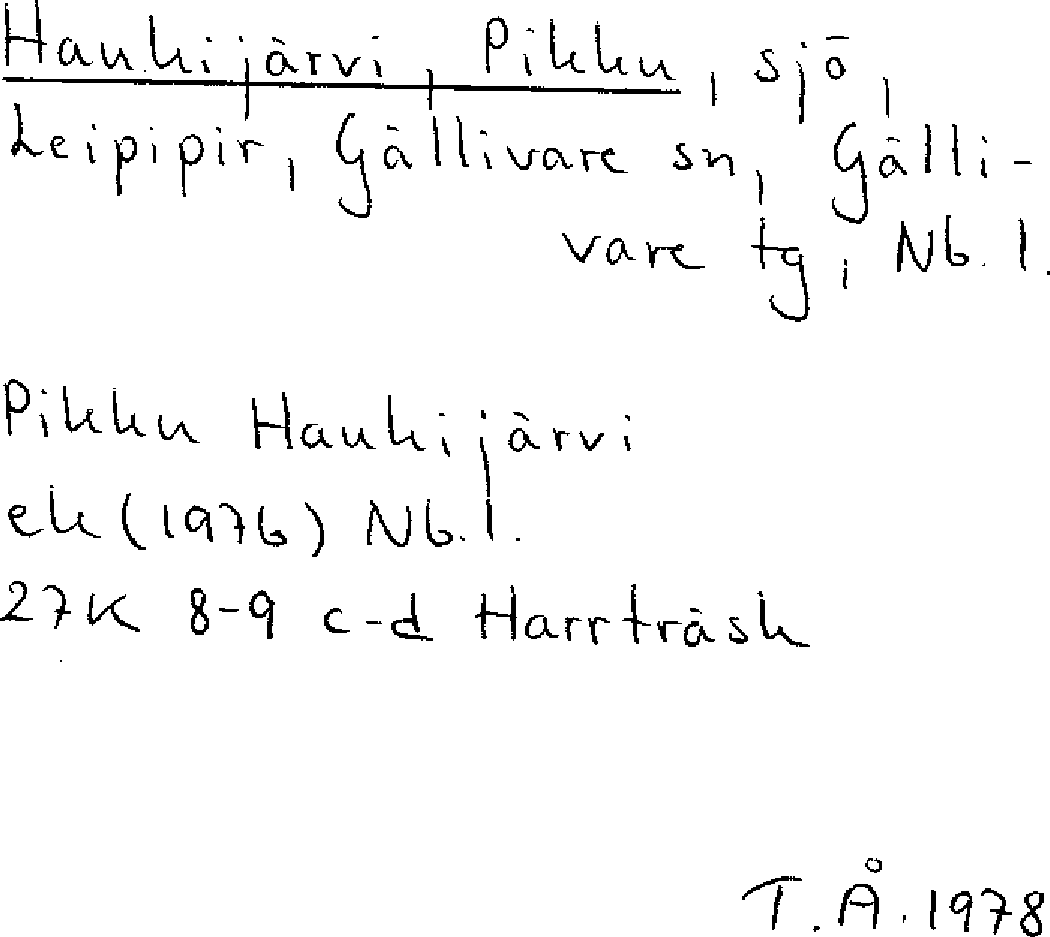 Haukijärvi, Pikku, sjö,
Leipipir, Gällivare sn, Gälli-
vare tg, Nb. l.
Pikku Haukijärvi
ek (1976) Nb. l.
27K 8-9 c-d Harrträsk
T. Å. 1978